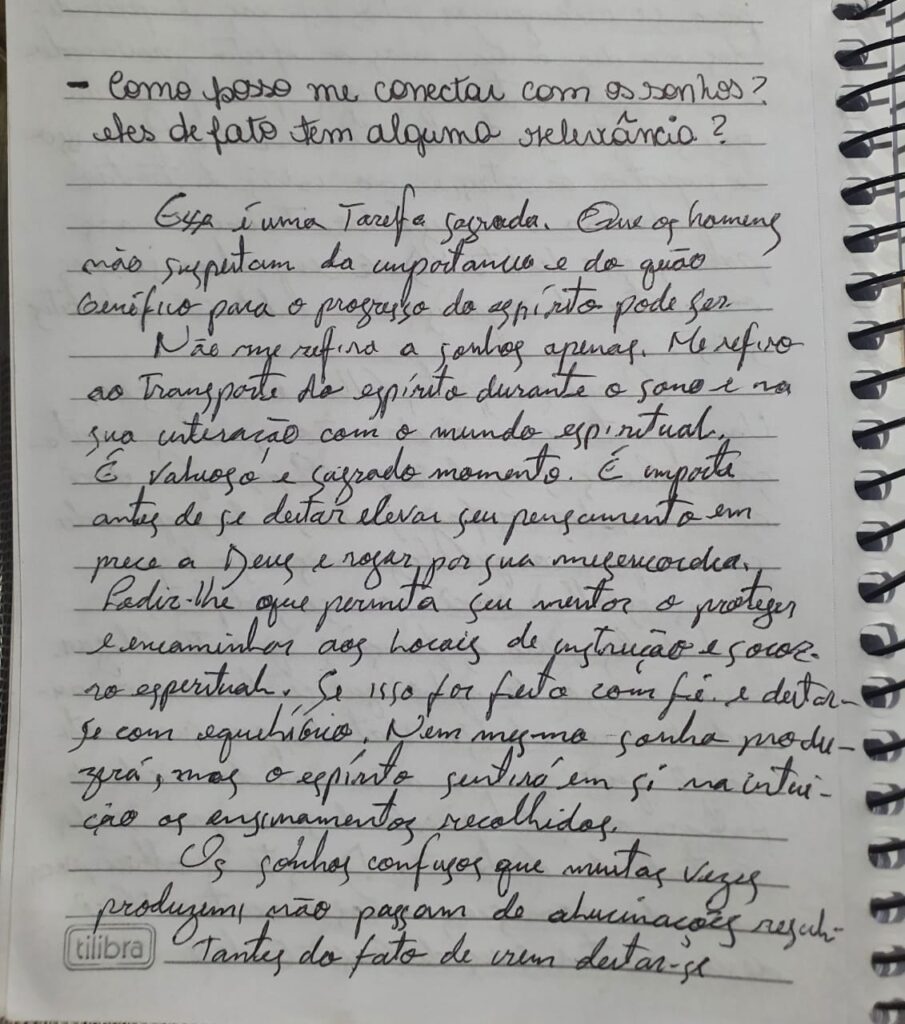 - Como posso me conectar com os sonhos?
eles de fato tem alguma relevância?
Essa é uma Tarefa sagrada. Que os homens
não suspeitam da importancia e do quão
benéfico para o progresso do espírito pode ser
Não me refiro a sonhos apenas. Me refiro
ao Transporte do espírito durante o sono e na
sua interação com o mundo espiritual.
É valioso e sagrado momento. É importe
antes de se deitar elevar seu pensamento em
prece a Deus e rogar por sua misericordia.
Pedir-lhe que permita seu mentor o proteger
e encaminhar aos locais de instrução e socor-
ro espiritual. Se isso for feito com fé e deitar-
se com equilíbrio. Nem mesmo sonho produ-
zirá, mas o espírito sentirá em si na intui-
ção os ensinamentos recolhidos.
Os sonhos confusos que muitas vezes
produzem, não passam de alucinações resul-
tantes do fato de irem deitar-se
tilibra